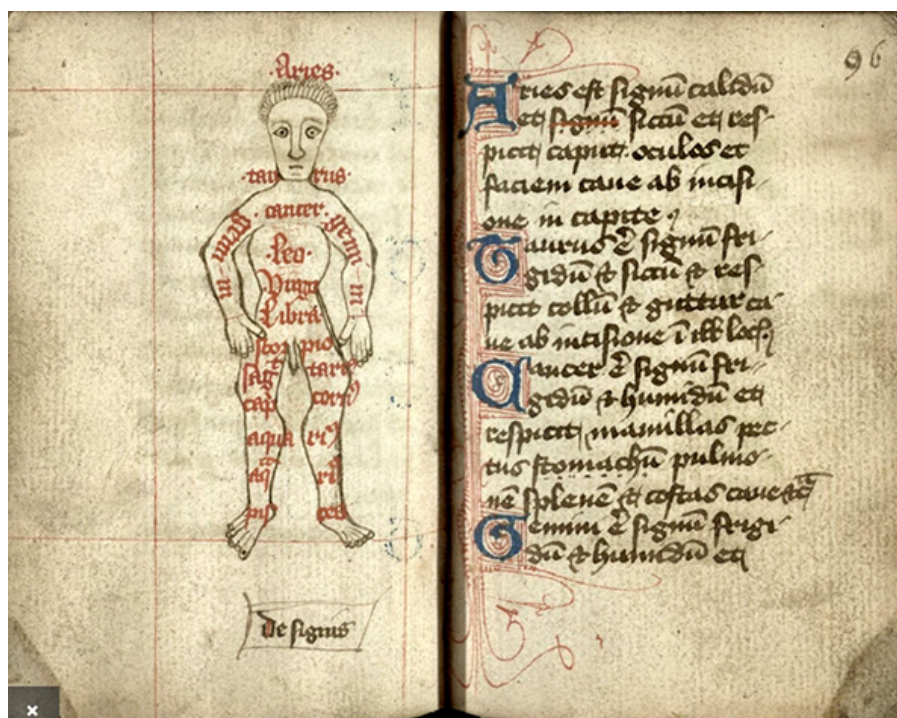 ·Aries·
·tau rus·
·cancer·
ge mi ni
·leo·
Virgo
Libra
scor pio
sag tari⁹
cap corn⁹
aqua ri⁹
aq̄ ri⁹
pis ces
de signis
96
Aries est signū calidū
et signū siccū et res-
picit caput oculos et
faciem caue ab incisi-
one in capite
Taurus ē signū fri-
gidū & siccū & res-
picit collū & guttur ca-
ue ab incisione ī ill̄ loc̄
Cancer ē signū fri-
gidū & humidū et
respicit mamillas pec-
tus stomachū pulmo-
nē splenē & costas caue &c̄
Gemini ē signū frigi-
dū & humidū et
×